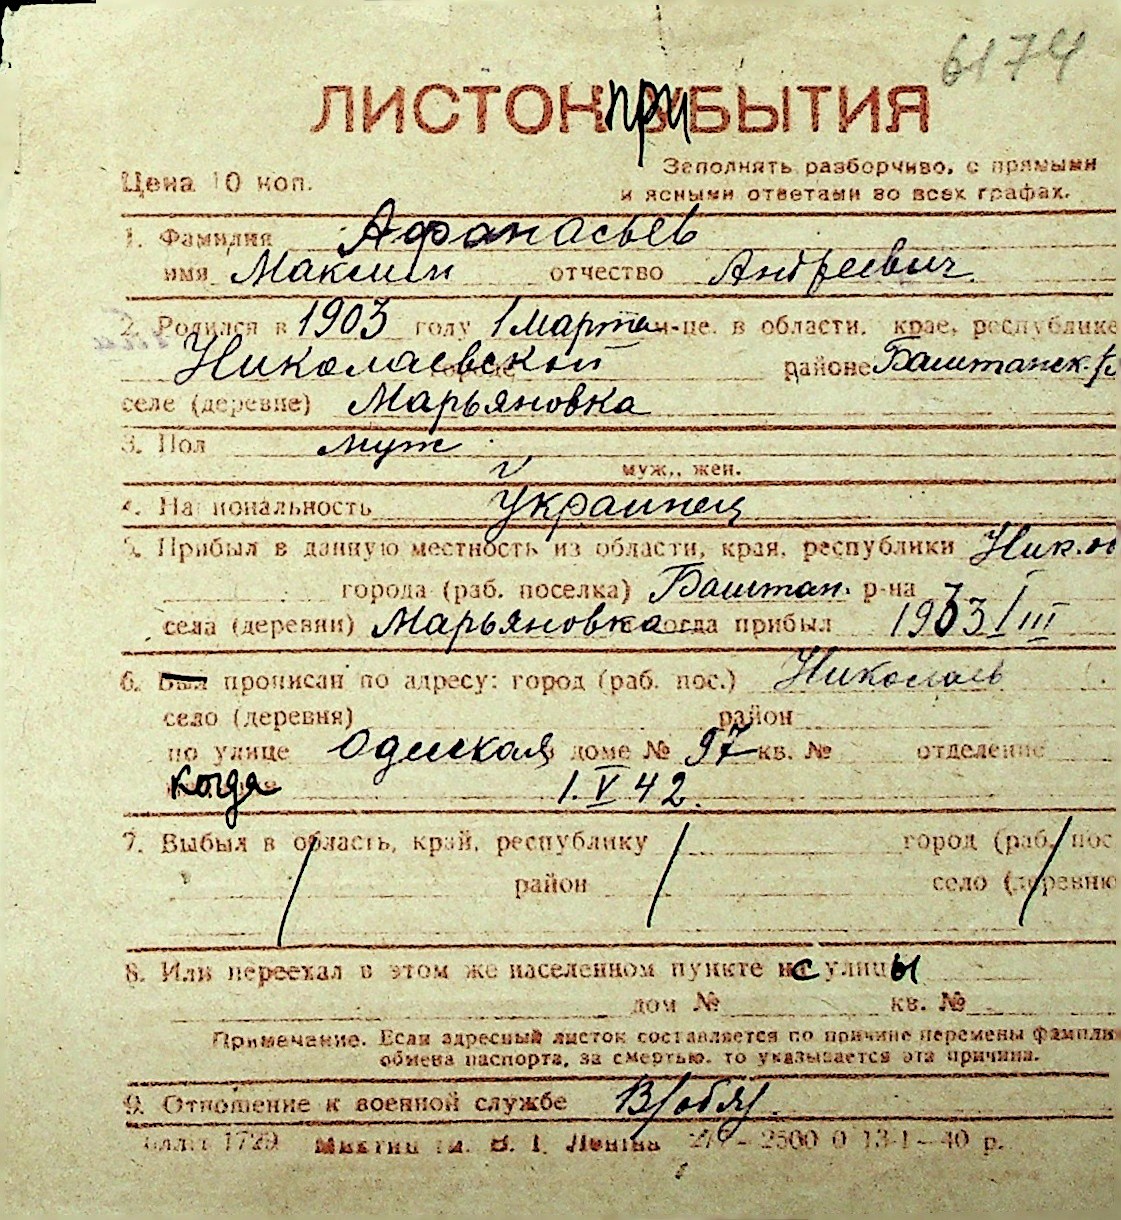 6174
ЛИСТОК ПРИБЫТИЯ
Цена 10 коп.
Заполнять разборчиво, с прямыми
и ясными ответами во всех графах.
1. Фамилия Афанасьев
имя Максим отчество Андреевич
2. Родился в 1903 году 1 марта м-це. в области, крае, республике
Николаевской районе Баштанск. р
селе (деревне) Марьяновка
3. Пол муж
муж., жен.
4. Национальность Украинец
5. Прибыл в данную местность из области, края, республики Ник. об
города (раб. поселка) Баштан. р-на
села (деревни) Марьяновка когда прибыл 1933 1/III
6. Был прописан по адресу: город (раб. пос.) Николаев
село (деревня) район
по улице Одесская доме № 97 кв. № отделение
когда 1.V 42.
7. Выбыл в область, край, республику город (раб. пос
район село (деревню
8. Или переехал в этом же населенном пункте с улицы
дом № кв. №
Примечание. Если адресный листок составляется по причине перемены фамили
обмена паспорта, за смертью, то указывается эта причина.
9. Отношение к военной службе В/обяз.
1729 им. В. І. Леніна 2500 0 13-I-40 р.